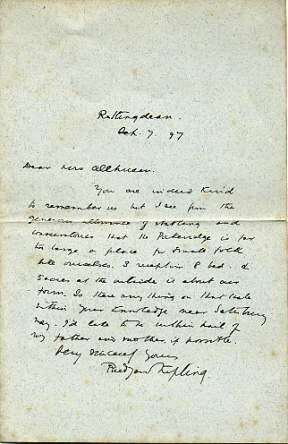 Rottingdean.
Oct. 7. 97
Dear Mrs Allhusen.
You are indeed kind
to remember us but I see from the
general allowance of stabling and
conservatories that the is far
too large a place for simple folk
like ourselves. 3 reception 8 bed &
2 acres at the outside is about our
form. Is there any thing on that scale
within your knowledge near Salisbury
way. I'd like to be within hail of
my father and mother if possible.
Very sincerely yours
Rudyard Kipling.